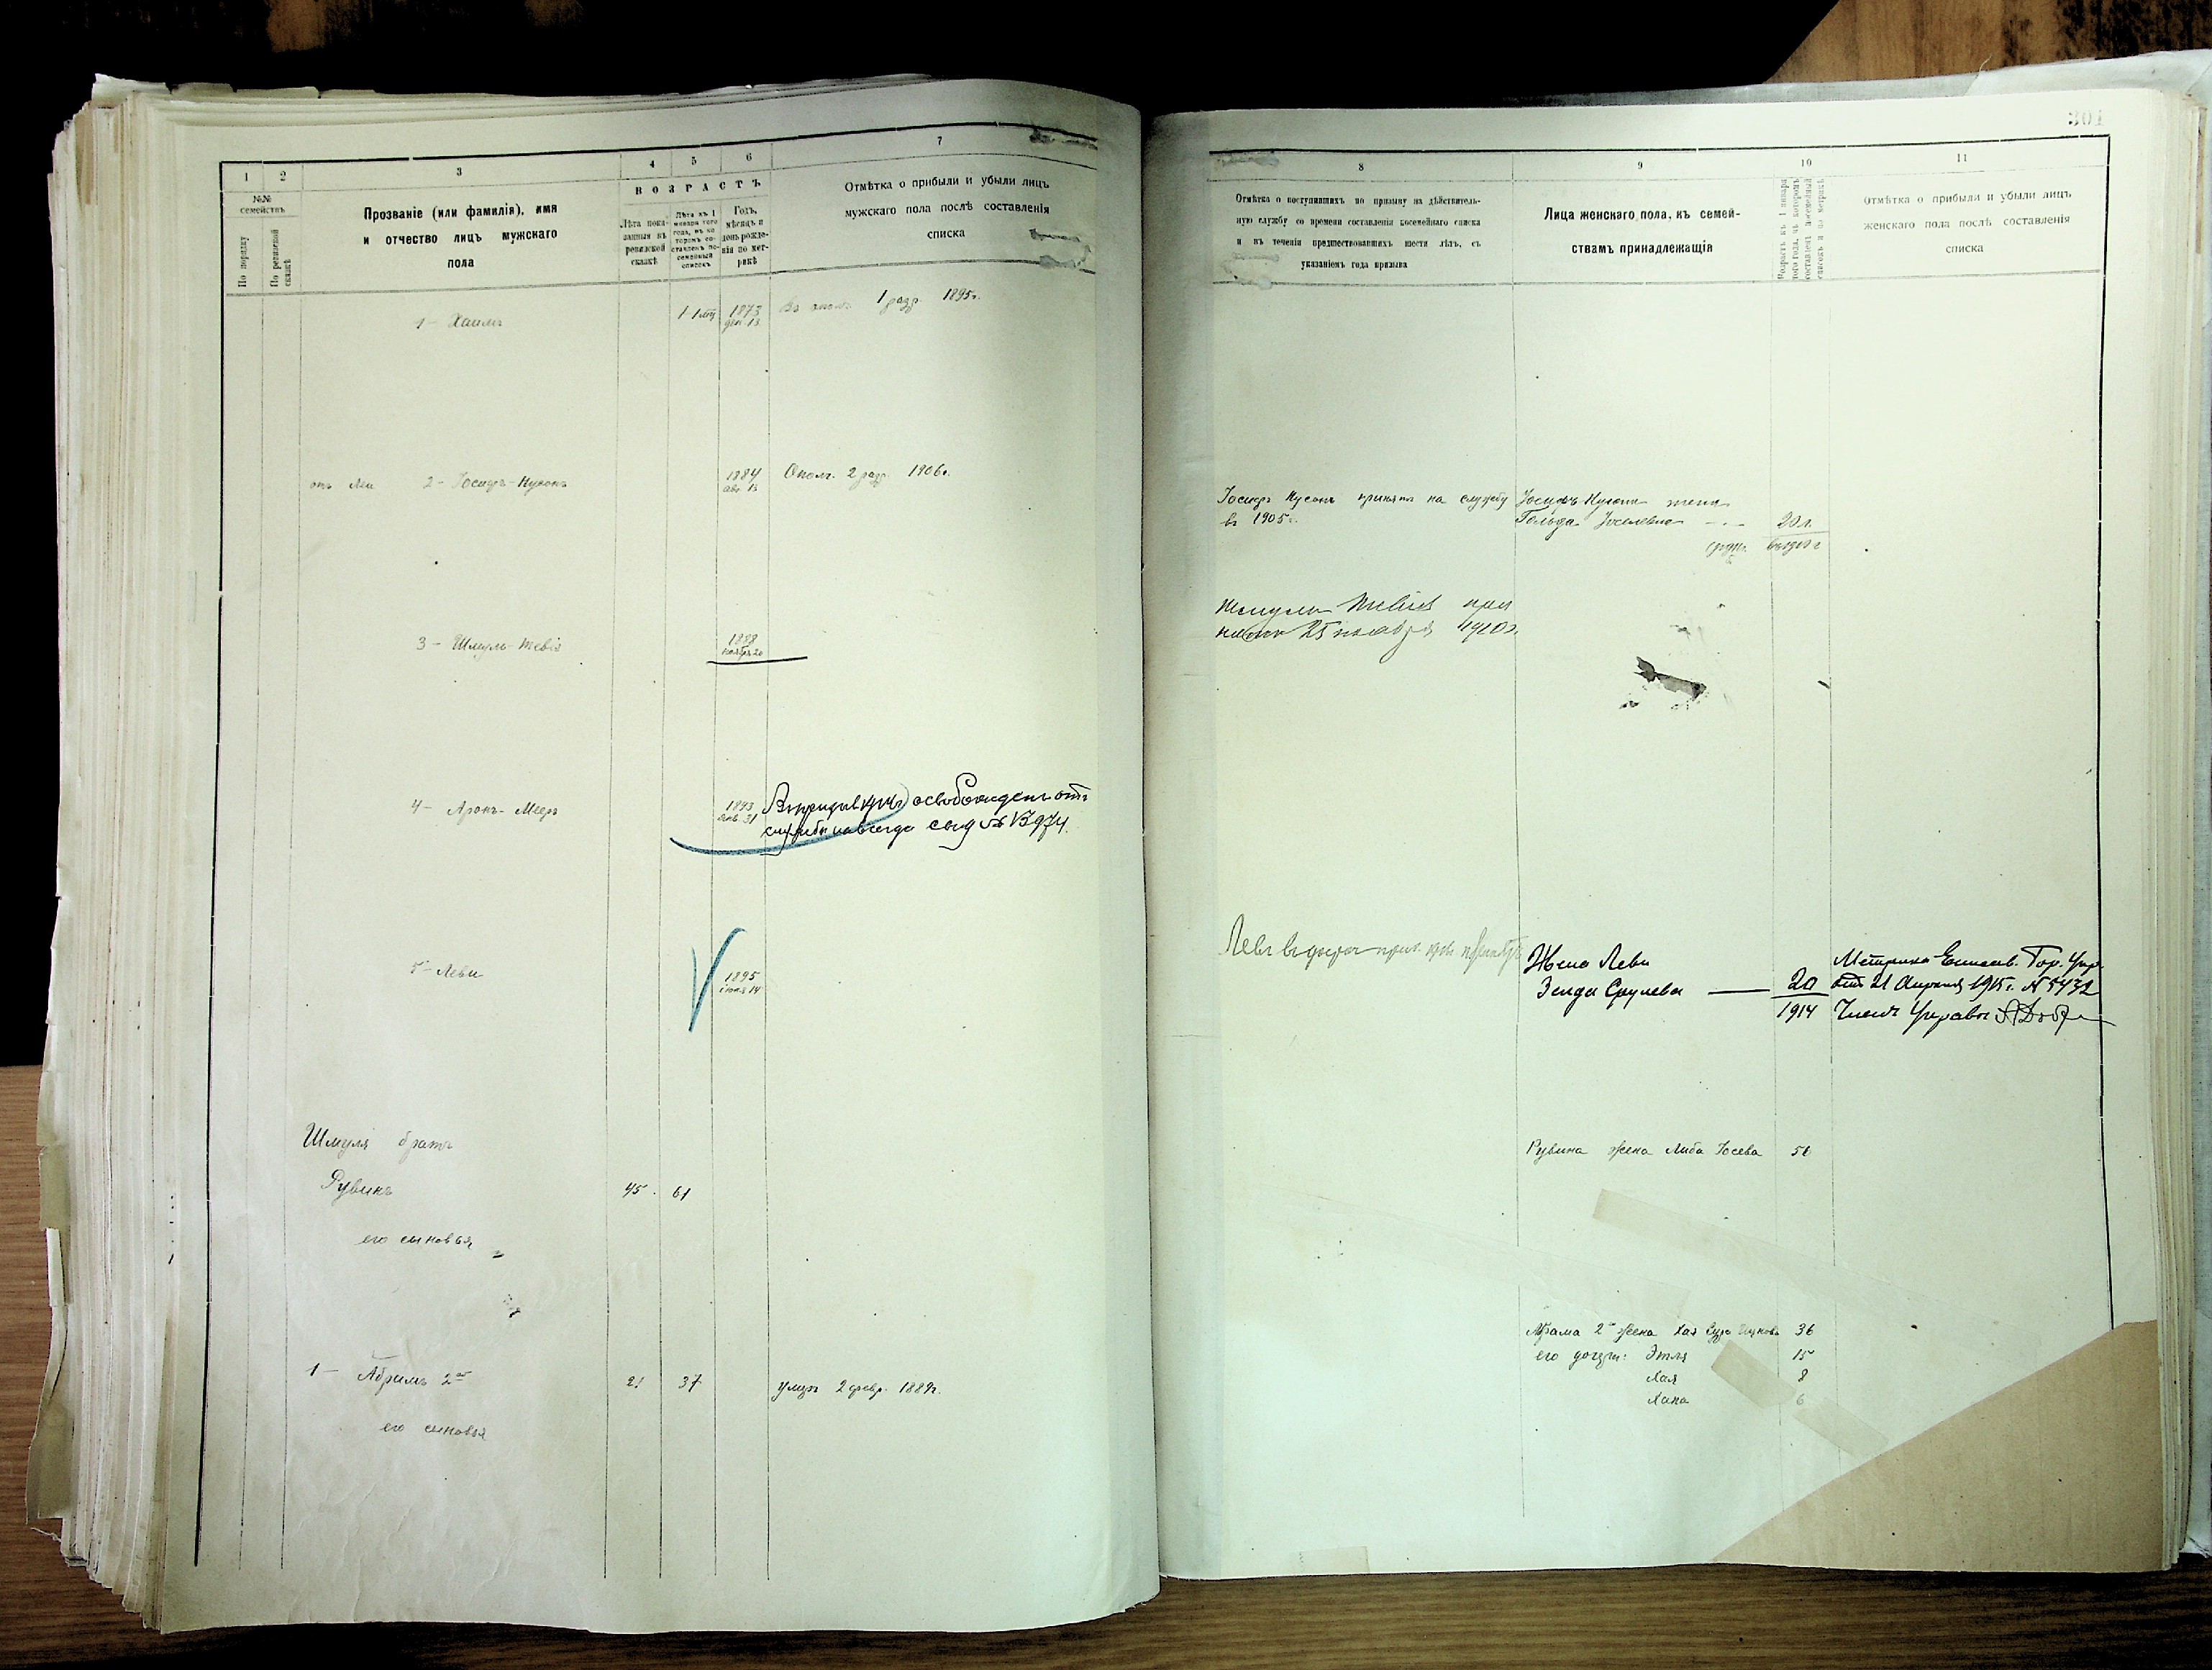 1 2 3 4 5 6 7
№№ семействъ
По порядку
По ревизской сказкѣ
Прозваніе (или фамилія), имя
и отчество лицъ мужскаго
пола
ВОЗРАСТЪ
Лѣта пока-
занныя въ
ревизской
сказкѣ
Лѣта къ 1
января того
года, въ ко-
торомъ со-
ставленъ по-
семейный
списокъ
Годъ,
мѣсяцъ и
день рожде-
нія по мет-
рикѣ
Отмѣтка о прибыли и убыли лицъ
мужскаго пола послѣ составленія
списка
1 - Хаимъ 1873 1 разр. 1895г.
отъ Леи 2 - Іосифъ-Нусонъ 1884 авг 13 Ополч. 2 разр. 1906г.
3 - Шмуль-Тевіе 1888 ноября 20
4 - Аронъ-Меер 1893 янв 31 освобожденъ отъ
службы навсегда
5 - Леви 1895 14
Шмуля братъ
Рувинъ 45 61
его сыновья
1 - Абрамъ 2й 21 37 умеръ 2 февр. 1889г.
его сыновья
301
8 9 10 11
Отмѣтка о поступившихъ по призыву на дѣйствитель-
ную службу со времени составленія посемейнаго списка
и въ теченіи предшествовавшихъ шести лѣтъ, съ
указаніемъ года призыва
Лица женскаго пола, къ семей-
ствамъ принадлежащія
Возрастъ къ 1 января
того года, въ которомъ
составленъ посемейный
списокъ и по метрикѣ
Отмѣтка о прибыли и убыли лицъ
женскаго пола послѣ составленія
списка
Іосифъ Нусонъ принятъ на службу
въ 1905г.
Іосифъ-Нусона жена
Гольда Іоселевна 20 л.
Шмуль Тевіе при
нятъ 25 ноября 1910г.
Леви
Жена Леви
Зелда Срулева 20
1914
Метрика Елисав. Гор. Упр.
отъ 21 Апреля 1915г. N 5432
Членъ Управы
Рувина жена Либа Іосева 50
Абрама 2й жена Хая 36
его дочери: Этля 15
Хая 8
Хана 6